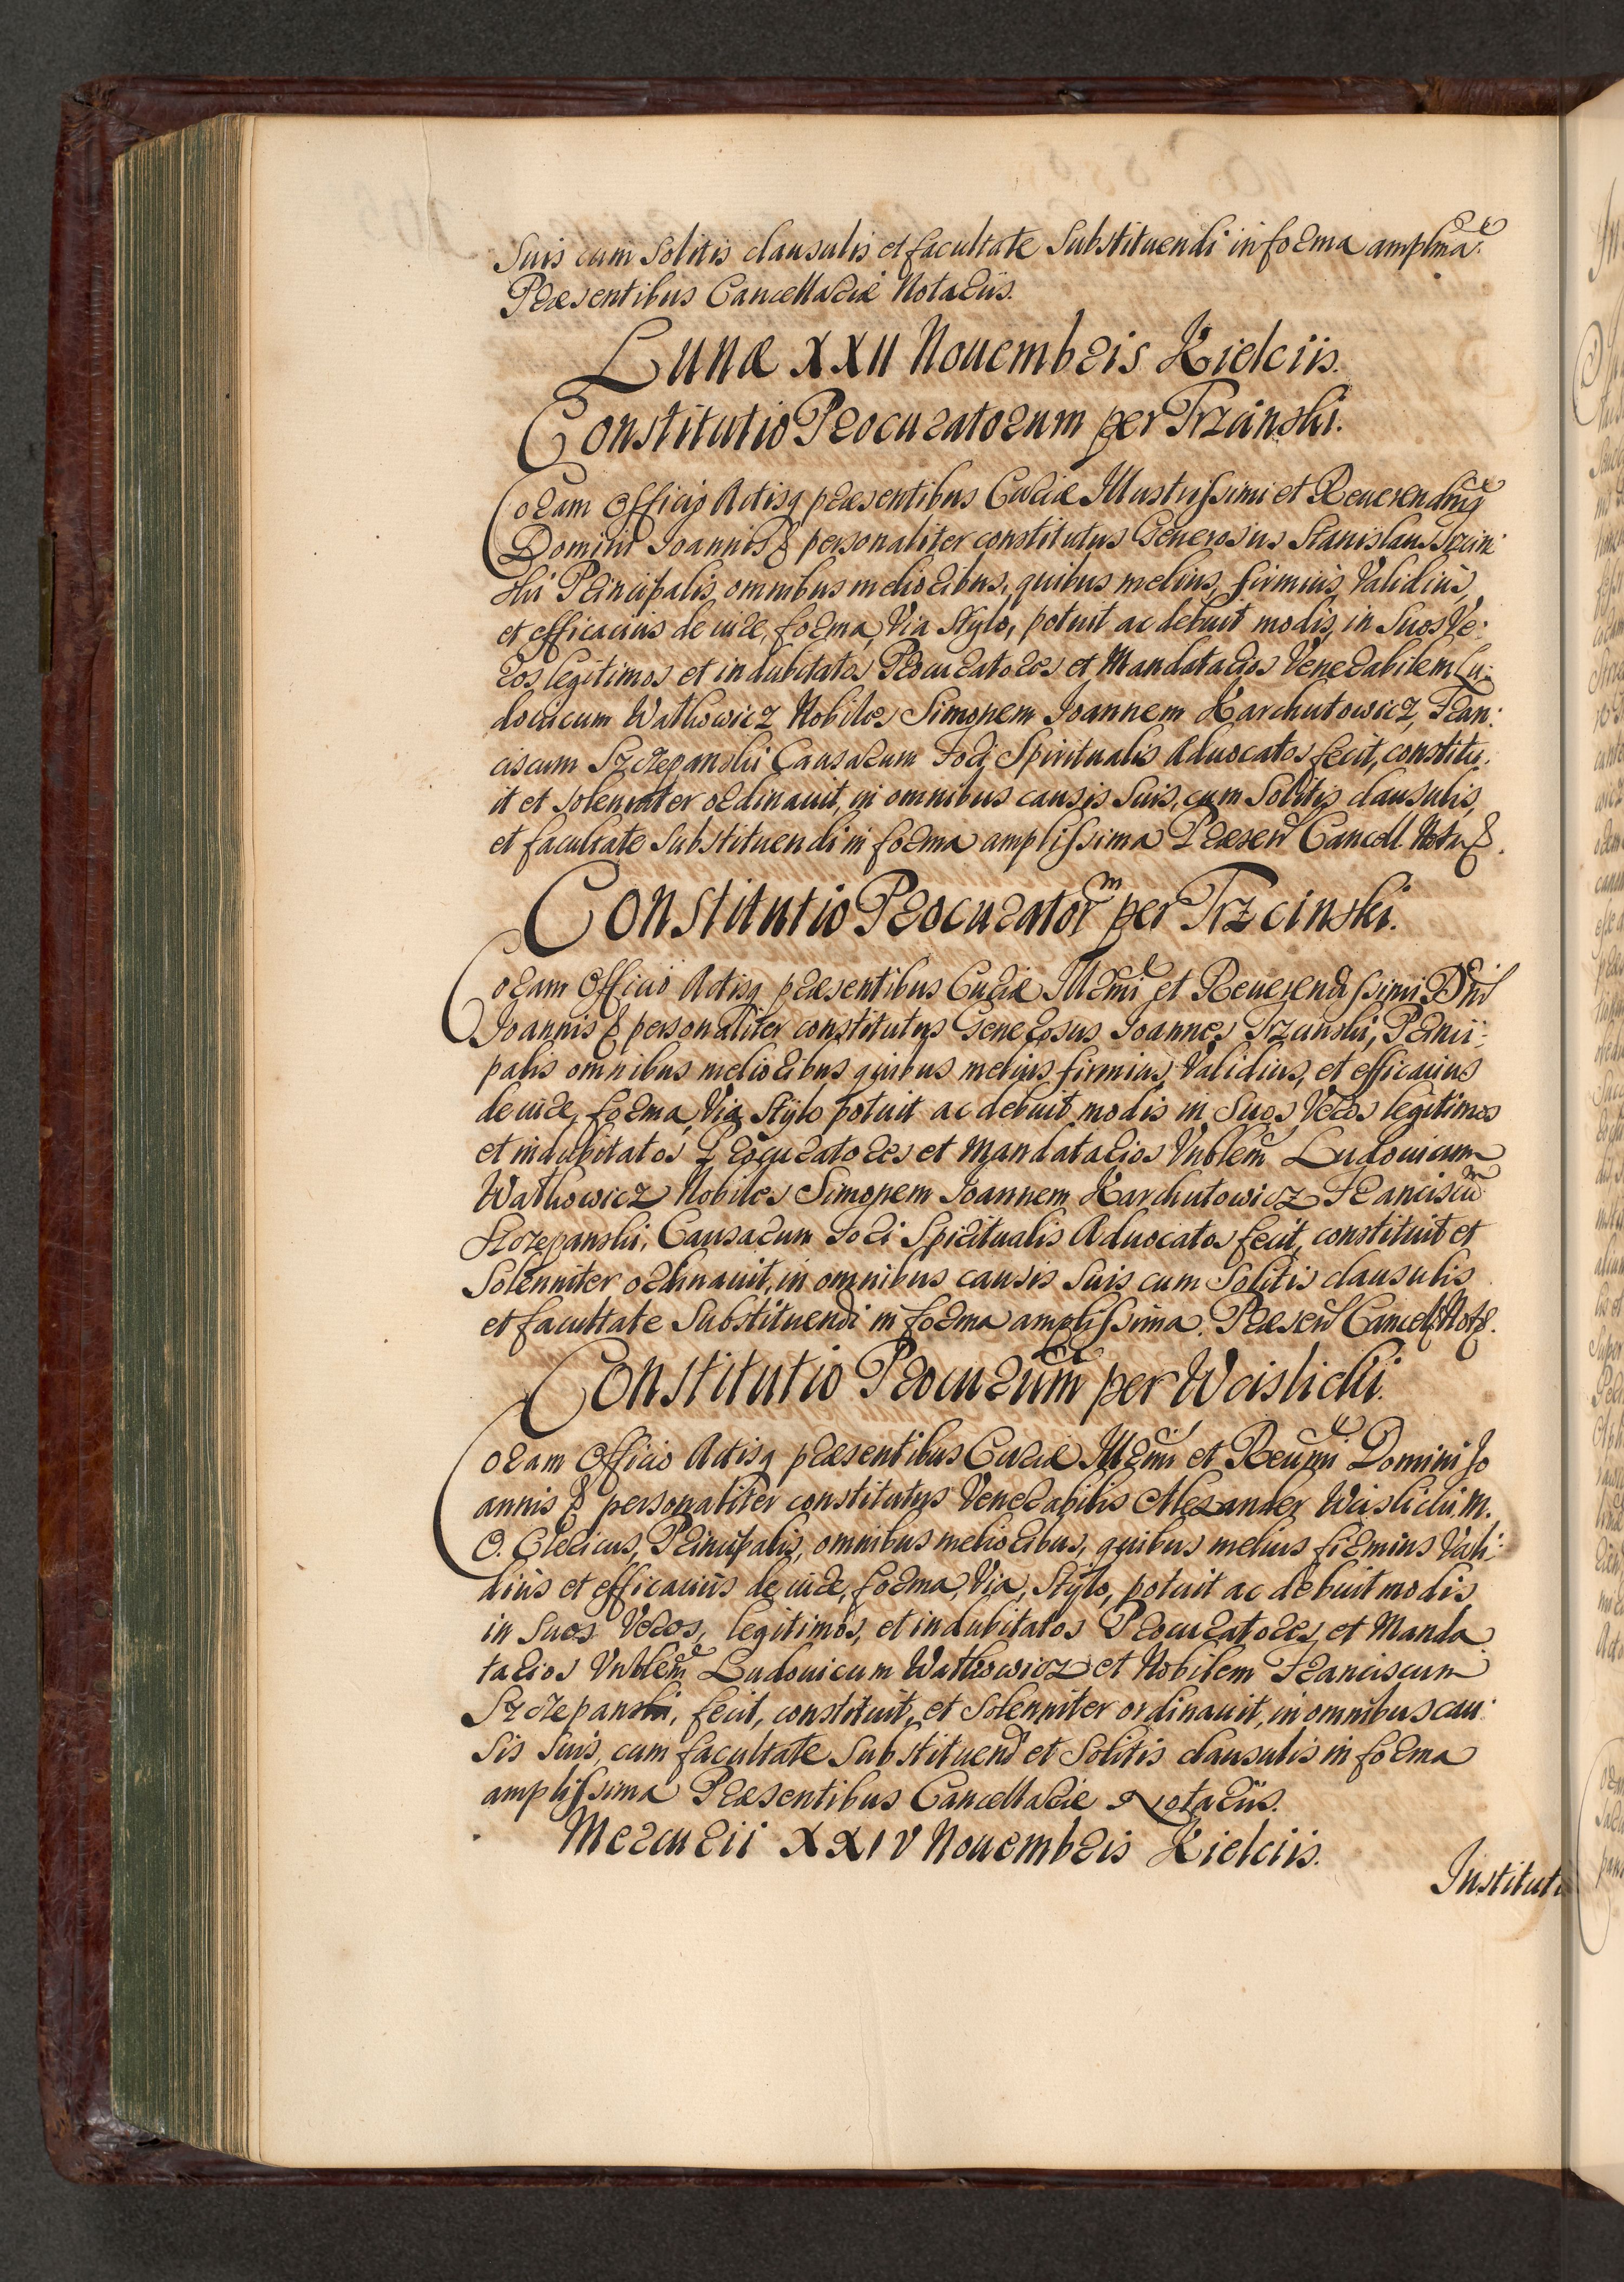 Suis cum Solitis clausulis et facultate Substituendi in forma amplma.
Præsentibus Cancellariæ Notariis.
Lunæ XXII Nouembris Kielciis.
Constitutio Procuratorum per Trzcinski.
Coram Officio Actisq præsentibus Curiæ Illustrissimi et Reuerendmi
Domini Joannis & personaliter constitutus Generosus Stanislaus Trzcin:
ski Principalis omnibus melioribus, quibus melius, firmius, Validius,
et efficacius de iure, forma, Via Stylo, potuit ac debuit modis, in Suos Ve:
ros legitimos et indubitatos Procuratores et Mandatarios Venerabilem Lu:
douicum Wathowicz Nobiles Simonem Joannem Karchutowicz, Fran:
ciscum Szczepanski Causarum Fori Spiritualis Aduocatos fecit, constitu:
it et Solenniter ordinauit, in omnibus causis Suis, cum Solitis clausulis,
et facultate Substituendi in forma amplissima Præsen Cancell. Nota &.
Constitutio Procuratorm per Trzcinski.
Coram Officio Actisq præsentibus Curiæ Illrmi et Reuerendissimi Dni
Joannis & personaliter constitutus Generosus Joannes Trzcinski, Princi:
palis omnibus melioribus quibus melius firmius, Validius, et efficacius
de iure, forma, Via, Stylo potuit ac debuit modis in Suos Veros legitimos
et indubitatos Procuratores et Mandatarios Vnblem Ludouicum
Wathowicz Nobiles Simonem Joannem Karchutowicz Franciscum
Szczepanski, Causarum Fori Spiritualis Aduocatos fecit, constituit et
Solenniter ordinauit, in omnibus causis Suis cum Solitis clausulis
et facultate Substituendi in forma amplissima. Præsen Cancell Not &.
Constitutio Procurum per Wcislicki.
Coram Officio Actisq præsentibus Curiæ Illrmi et Reumi Domini Jo
annis & personaliter constitutus Venerabilis Alexander Wcislicki, M.
O. Clericus, Principalis, omnibus melioribus, quibus melius firmius Vali:
dius et efficacius de iure, forma, Via, Stylo, potuit ac debuit modis,
in Suos Veros, legitimos, et indubitatos Procuratores, et Manda
tarios Vnblem Ludouicum Wathowicz et Nobilem Franciscum
Szczepanski, fecit, constituit, et Solenniter ordinauit, in omnibus cau:
sis Suis, cum facultate Substituend et Solitis clausulis in forma
amplissima Præsentibus Cancellariæ Notariis.
Mercurii XXIV Nouembris Kielciis.
Institut